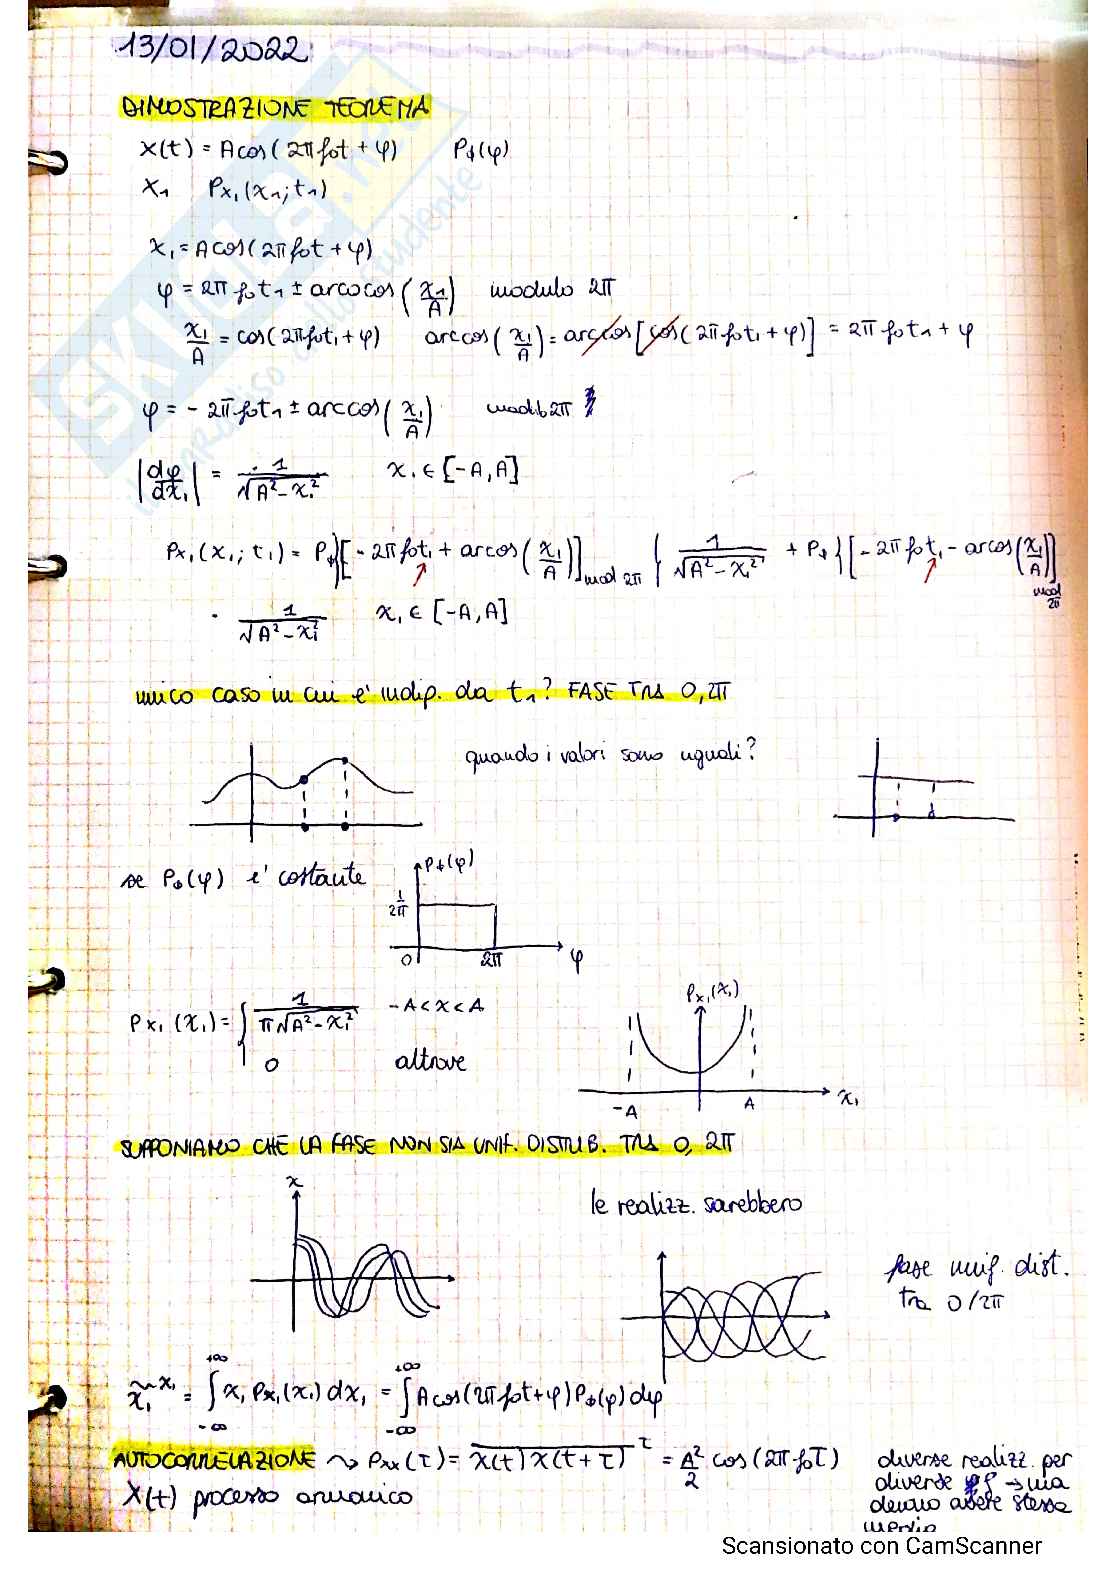 13/01/2022
DIMOSTRAZIONE TEOREMA
x(t) = A cos(2π f₀t + φ) P_ϕ(φ)
X₁ P_X₁(x₁; t₁)
x₁ = A cos(2π f₀t + φ)
φ = 2π f₀t₁ ± arcocos(x₁/A) modulo 2π
x₁/A = cos(2π f₀t₁ + φ) arccos(x₁/A) = arccos[cos(2π f₀t₁ + φ)] = 2π f₀t₁ + φ
φ = - 2π f₀t₁ ± arccos(x₁/A) 2π
|dφ/dx₁| = 1/√(A² - x₁²) x₁ ∈ [-A, A]
P_X₁(x₁; t₁) = P_ϕ{[- 2π f₀t₁ + arcos(x₁/A)]mod 2π} 1/√(A² - x₁²) + P_ϕ{[- 2π f₀t₁ - arcos(x₁/A)] mod 2π
· 1/√(A² - x₁²) x₁ ∈ [-A, A]
unico caso in cui e' indip. da t₁? FASE TRA 0, 2π
quando i valori sono uguali?
se P_ϕ(φ) e' costante
P_ϕ(φ)
1/2π
0 2π φ
P_X₁(x₁) = { 1/(π√(A² - x₁²)) -A < x < A
0 altrove
P_X₁(x₁)
-A A x₁
SUPPONIAMO CHE LA FASE NON SIA UNIF. DISTRIB. TRA 0, 2π
x
le realizz. sarebbero
fase unif. dist.
tra 0/2π
x₁ ^x₁ = ∫_{-∞}^{+∞} x₁ P_X₁(x₁) dx₁ = ∫_{-∞}^{+∞} A cos(2π f₀t + φ) P_ϕ(φ) dφ
AUTOCORRELAZIONE ⇝ P_xx(τ) = x(t) x(t + τ) ^τ = A²/2 cos(2π f₀τ)
X(t) processo armonico
diverse realizz. per
diverse φ → ma
devono avere stessa
media
Scansionato con CamScanner
SKUOLA.net
il paradiso dello studente